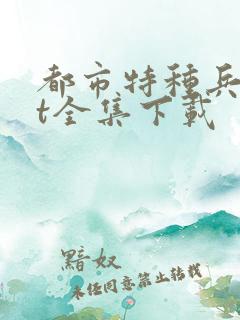 都市特种兵
t全集下载
黯奴
未经同意禁止转载